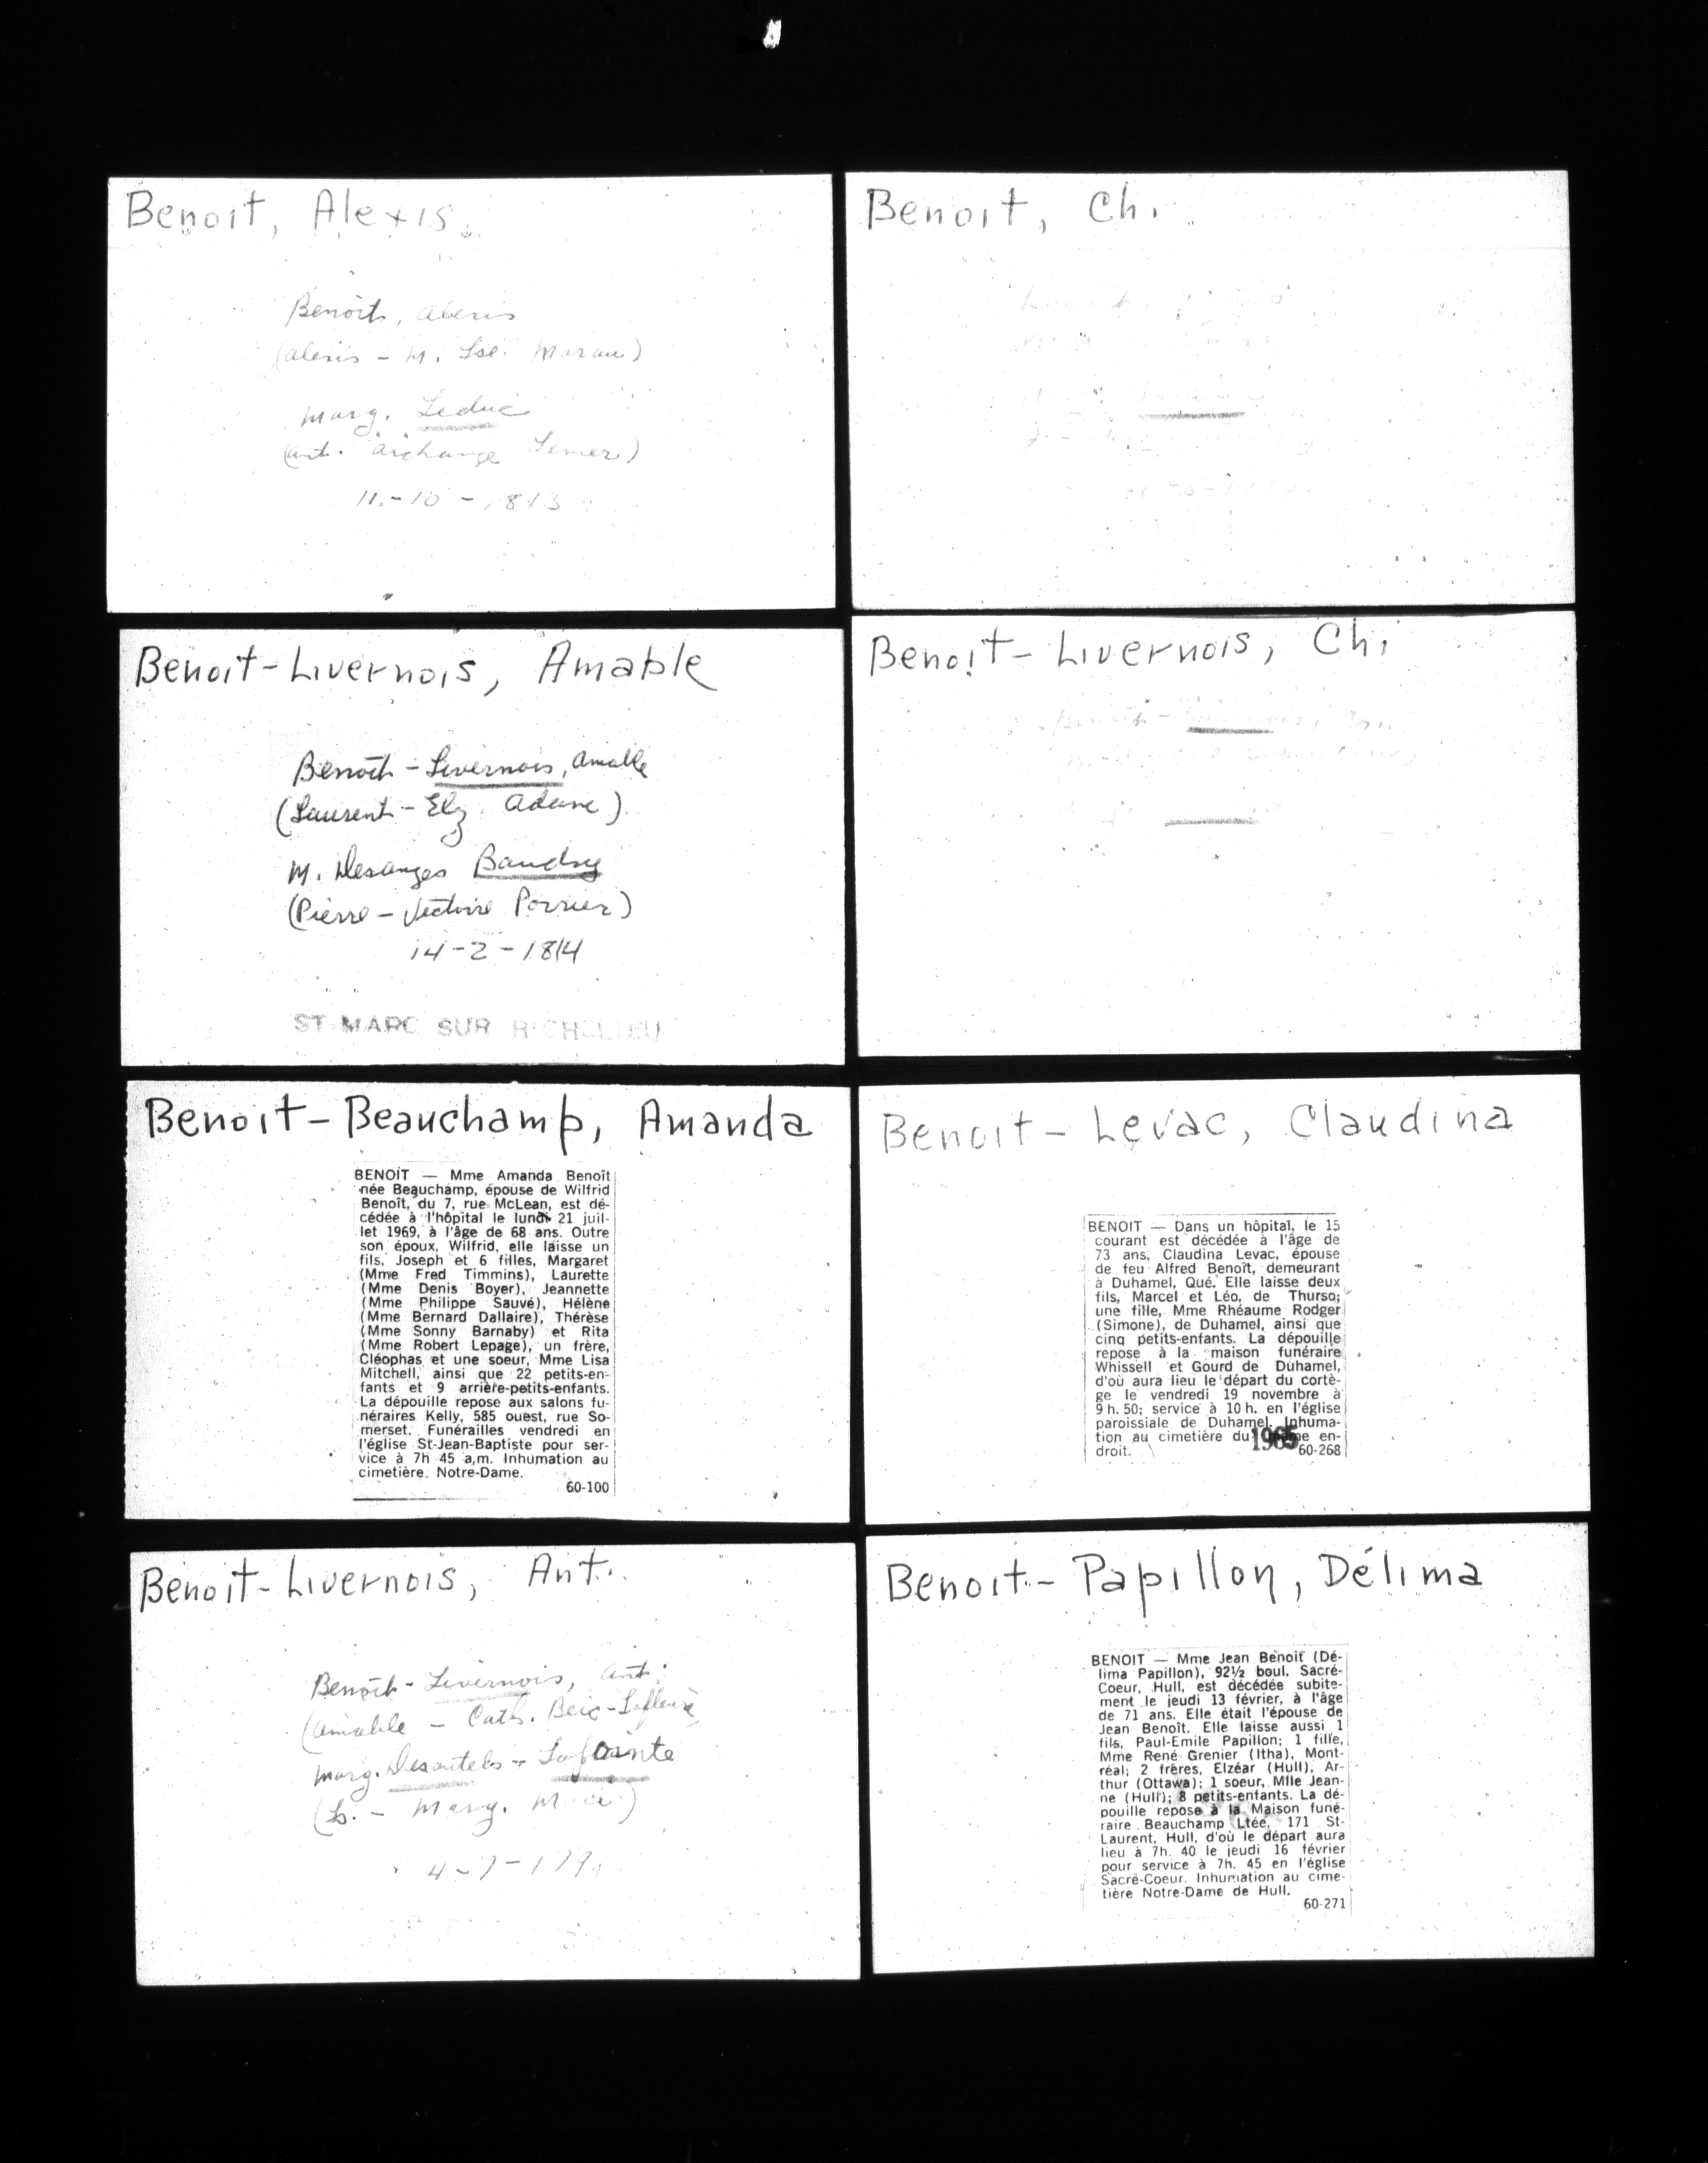 Benoit, Alexis
Benoît, Alexis
(Alexis - M. Lse.
Marg. Leduc
(Ant. Archange
11-10-1813
Benoit-Livernois, Amable
Benoît-Livernois, Amable
(Laurent - Elz. Adam)
M. Desanges Baudry
(Pierre - Victoire Poirier)
14-2-1814
ST MARC SUR RICHELIEU
Benoit-Beauchamp, Amanda
BENOÎT — Mme Amanda Benoît
née Beauchamp, épouse de Wilfrid
Benoît, du 7, rue McLean, est dé-
cédée à l'hôpital le lundi 21 juil-
let 1969, à l'âge de 68 ans. Outre
son époux, Wilfrid, elle laisse un
fils, Joseph et 6 filles, Margaret
(Mme Fred Timmins), Laurette
(Mme Denis Boyer), Jeannette
(Mme Philippe Sauvé), Hélène
(Mme Bernard Dallaire), Thérèse
(Mme Sonny Barnaby) et Rita
(Mme Robert Lepage), un frère,
Cléophas et une soeur, Mme Lisa
Mitchell, ainsi que 22 petits-en-
fants et 9 arrière-petits-enfants.
La dépouille repose aux salons fu-
néraires Kelly, 585 ouest, rue So-
merset. Funérailles vendredi en
l'église St-Jean-Baptiste pour ser-
vice à 7h 45 a.m. Inhumation au
cimetière Notre-Dame.
60-100
Benoit-Livernois, Ant.
Benoît-Livernois, Ant.
(Amable - Cath.
Marg. Desautels - Lapointe
(Ls. - Marg.
4-7-179
Benoit, Ch.
Benoit-Livernois, Ch.
Benoit-Levac, Claudina
BENOIT — Dans un hôpital, le 15
courant est décédée à l'âge de
73 ans, Claudina Levac, épouse
de feu Alfred Benoît, demeurant
à Duhamel, Qué. Elle laisse deux
fils, Marcel et Léo, de Thurso;
une fille, Mme Rhéaume Rodger
(Simone), de Duhamel, ainsi que
cinq petits-enfants. La dépouille
repose à la maison funéraire
Whissell et Gourd de Duhamel,
d'où aura lieu le départ du cortè-
ge le vendredi 19 novembre à
9 h. 50; service à 10 h. en l'église
paroissiale de Duhamel. Inhuma-
tion au cimetière du même en-
droit. 1965 60-268
Benoit-Papillon, Délima
BENOIT — Mme Jean Benoit (Dé-
lima Papillon), 92½ boul. Sacré-
Coeur, Hull, est décédée subite-
ment le jeudi 13 février, à l'âge
de 71 ans. Elle était l'épouse de
Jean Benoît. Elle laisse aussi 1
fils, Paul-Emile Papillon; 1 fille,
Mme René Grenier (Itha), Mont-
réal; 2 frères, Elzéar (Hull), Ar-
thur (Ottawa); 1 soeur, Mlle Jean-
ne (Hull); 8 petits-enfants. La dé-
pouille repose à la Maison funé-
raire Beauchamp Ltée, 171 St-
Laurent, Hull, d'où le départ aura
lieu à 7h. 40 le jeudi 16 février
pour service à 7h. 45 en l'église
Sacré-Coeur. Inhumation au cime-
tière Notre-Dame de Hull.
60-271